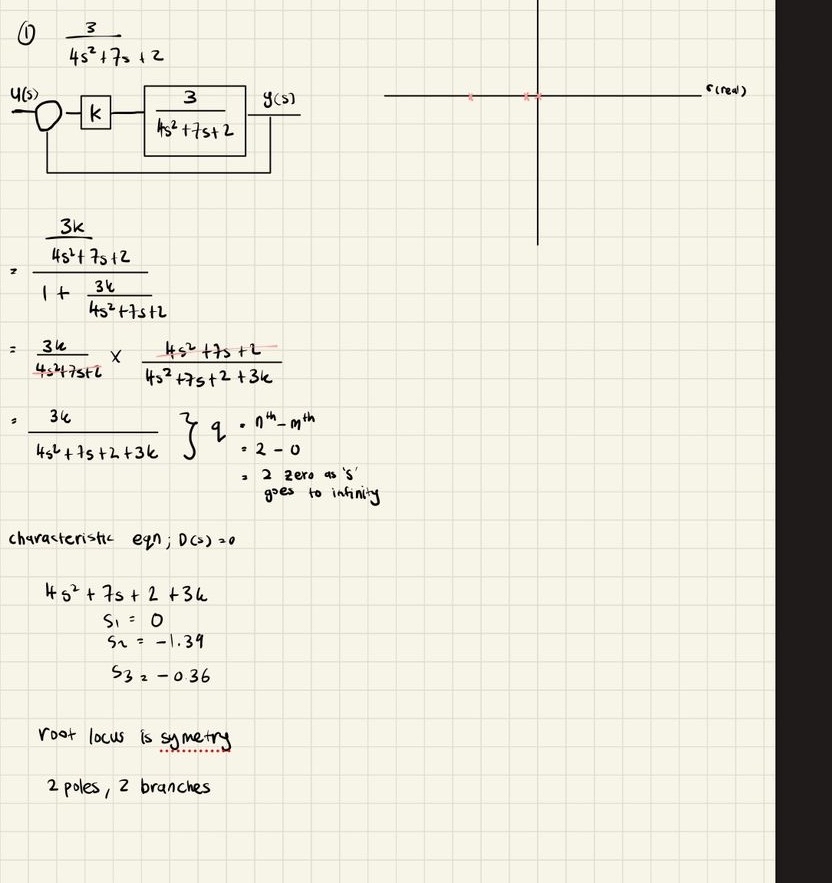 ① 3
4s² + 7s + 2
u(s)
k
3
4s² + 7s + 2
y(s)
σ (real)
3k
4s² + 7s + 2
=
1 + 3k
4s² + 7s + 2
= 3k × 4s² + 7s + 2
4s² + 7s + 2 4s² + 7s + 2 + 3k
= 3k
4s² + 7s + 2 + 3k
} q = nᵗʰ - mᵗʰ
= 2 - 0
= 2 zero as 's'
goes to infinity
characteristic eqn ; D(s) = 0
4s² + 7s + 2 + 3k
s₁ = 0
s₂ = -1.39
s₃ = -0.36
root locus is symetry
2 poles, 2 branches